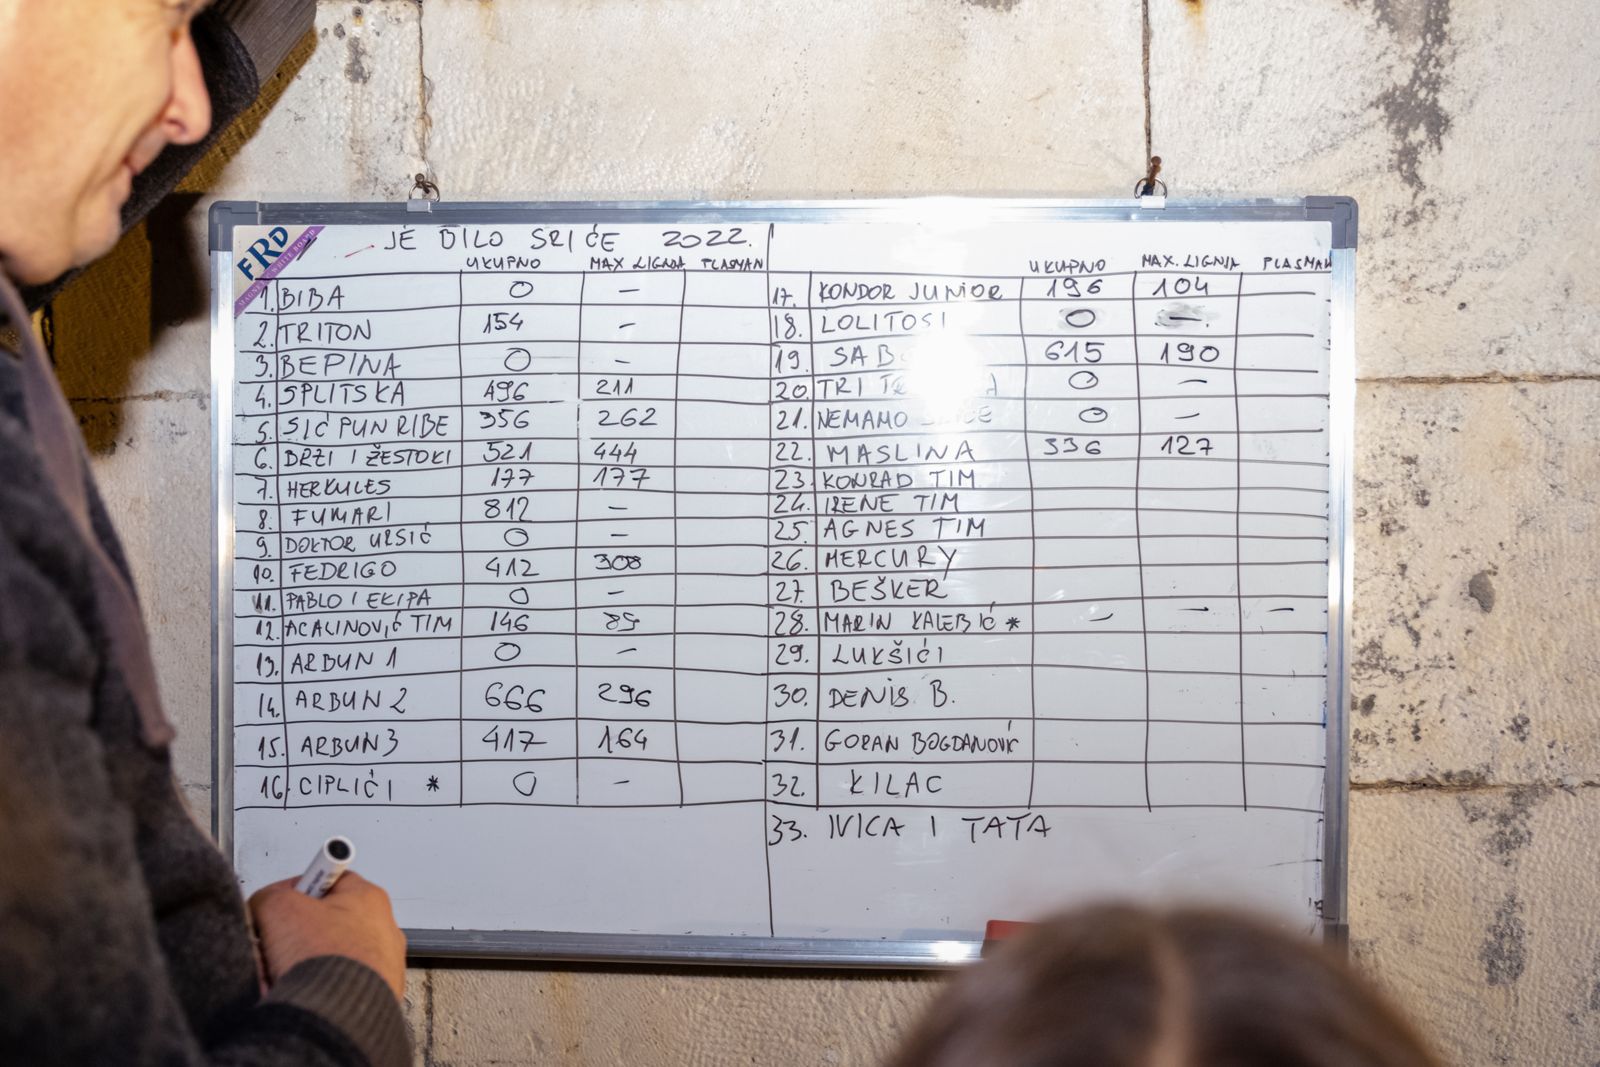 FRD
MAGNETIC WHITE BOARD
JE BILO SRIĆE 2022.
UKUPNO MAX LIGNJA PLASMAN
1. BIBA 0 –
2. TRITON 154 –
3. BEPINA 0 –
4. SPLITSKA 496 211
5. SIĆ PUN RIBE 356 262
6. BRZI I ŽESTOKI 521 444
7. HERKULES 177 177
8. FUMARI 812 –
9. DOKTOR URSIĆ 0 –
10. FEDRIGO 412 308
11. PABLO I EKIPA 0 –
12. ACALINOVIĆ TIM 146 89
13. ARBUN 1 0 –
14. ARBUN 2 666 296
15. ARBUN 3 417 164
16. CIPLIĆI * 0 –
UKUPNO MAX. LIGNJA PLASMAN
17. KONDOR JUNIOR 196 104
18. LOLITOSI 0 –
19. 615 190
20. TRI 0 –
21. NEMAMO 0 –
22. MASLINA 336 127
23. KONRAD TIM
24. IRENE TIM
25. AGNES TIM
26. MERCURY
27. BEŠKER
28. MARIN KALEBIĆ * – – –
29. LUKŠIĆI
30. DENIS B.
31. GORAN BOGDANOVIĆ
32. KILAC
33. IVICA I TATA